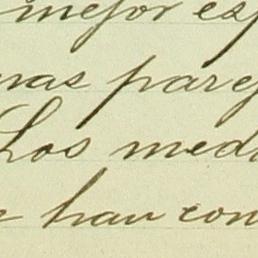 mejor esp
nas parej
Los medi
han con